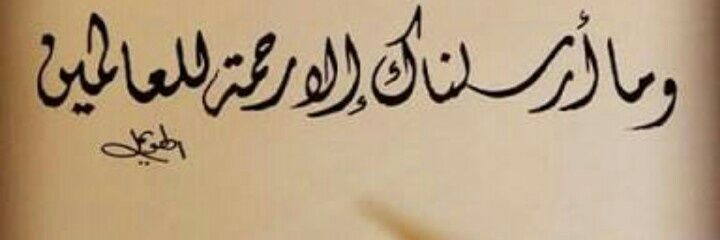 وما أرسلناك إلا رحمة للعالمين